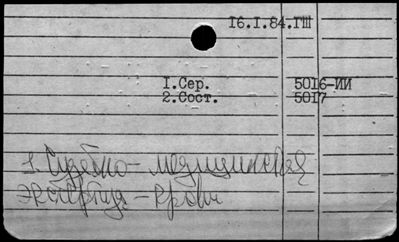 16.I.84.ГШ
1.Сер. 5016-ИИ
2.Сост. 5017
1 Судебно-медицинская
экспертиза - крови